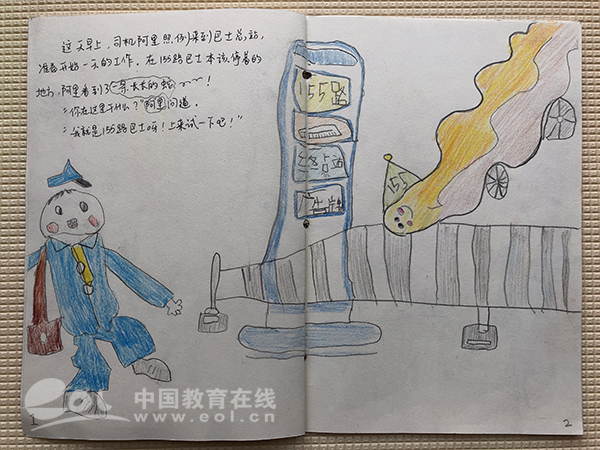 这天早上，司机阿里照例来到巴士总站，
准备开始一天的工作。在155路巴士本该停着的
地方，阿里看到了一条长长的蛇~~~！
“你在这里干什么？”阿里问道。
“我就是155路巴士呀！上来试一下吧！”
155路
总站
155
中国教育在线
www.eol.cn
1
2